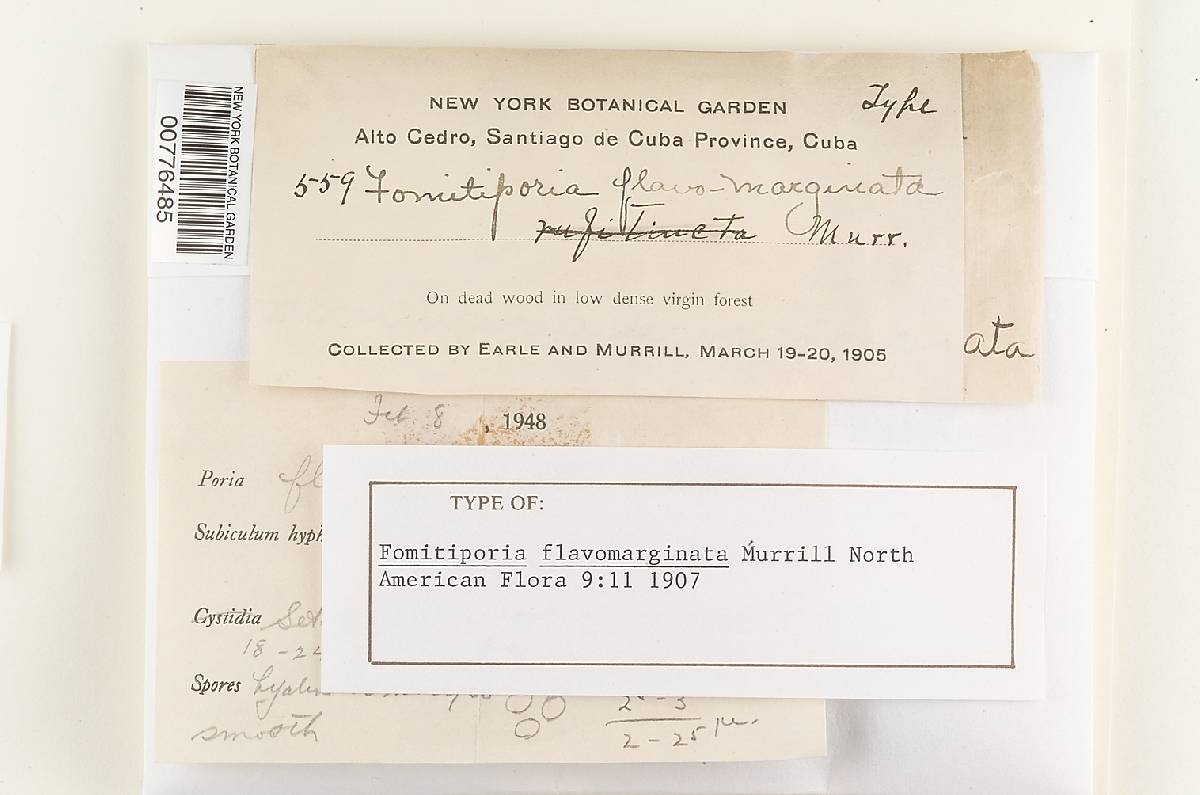 NEW YORK BOTANICAL GARDEN
00776485
NEW YORK BOTANICAL GARDEN Type
Alto Cedro, Santiago de Cuba Province, Cuba
559 Fomitiporia flavo-marginata
rufitincta Murr.
On dead wood in low dense virgin forest
COLLECTED BY EARLE AND MURRILL, MARCH 19-20, 1905
ata
Feb. 8, 1948
Poria fl
Subiculum hyph
Cystidia Set
18-24
Spores hyalin
smooth
2-25 µ.
TYPE OF:
Fomitiporia flavomarginata Murrill North
American Flora 9:11 1907